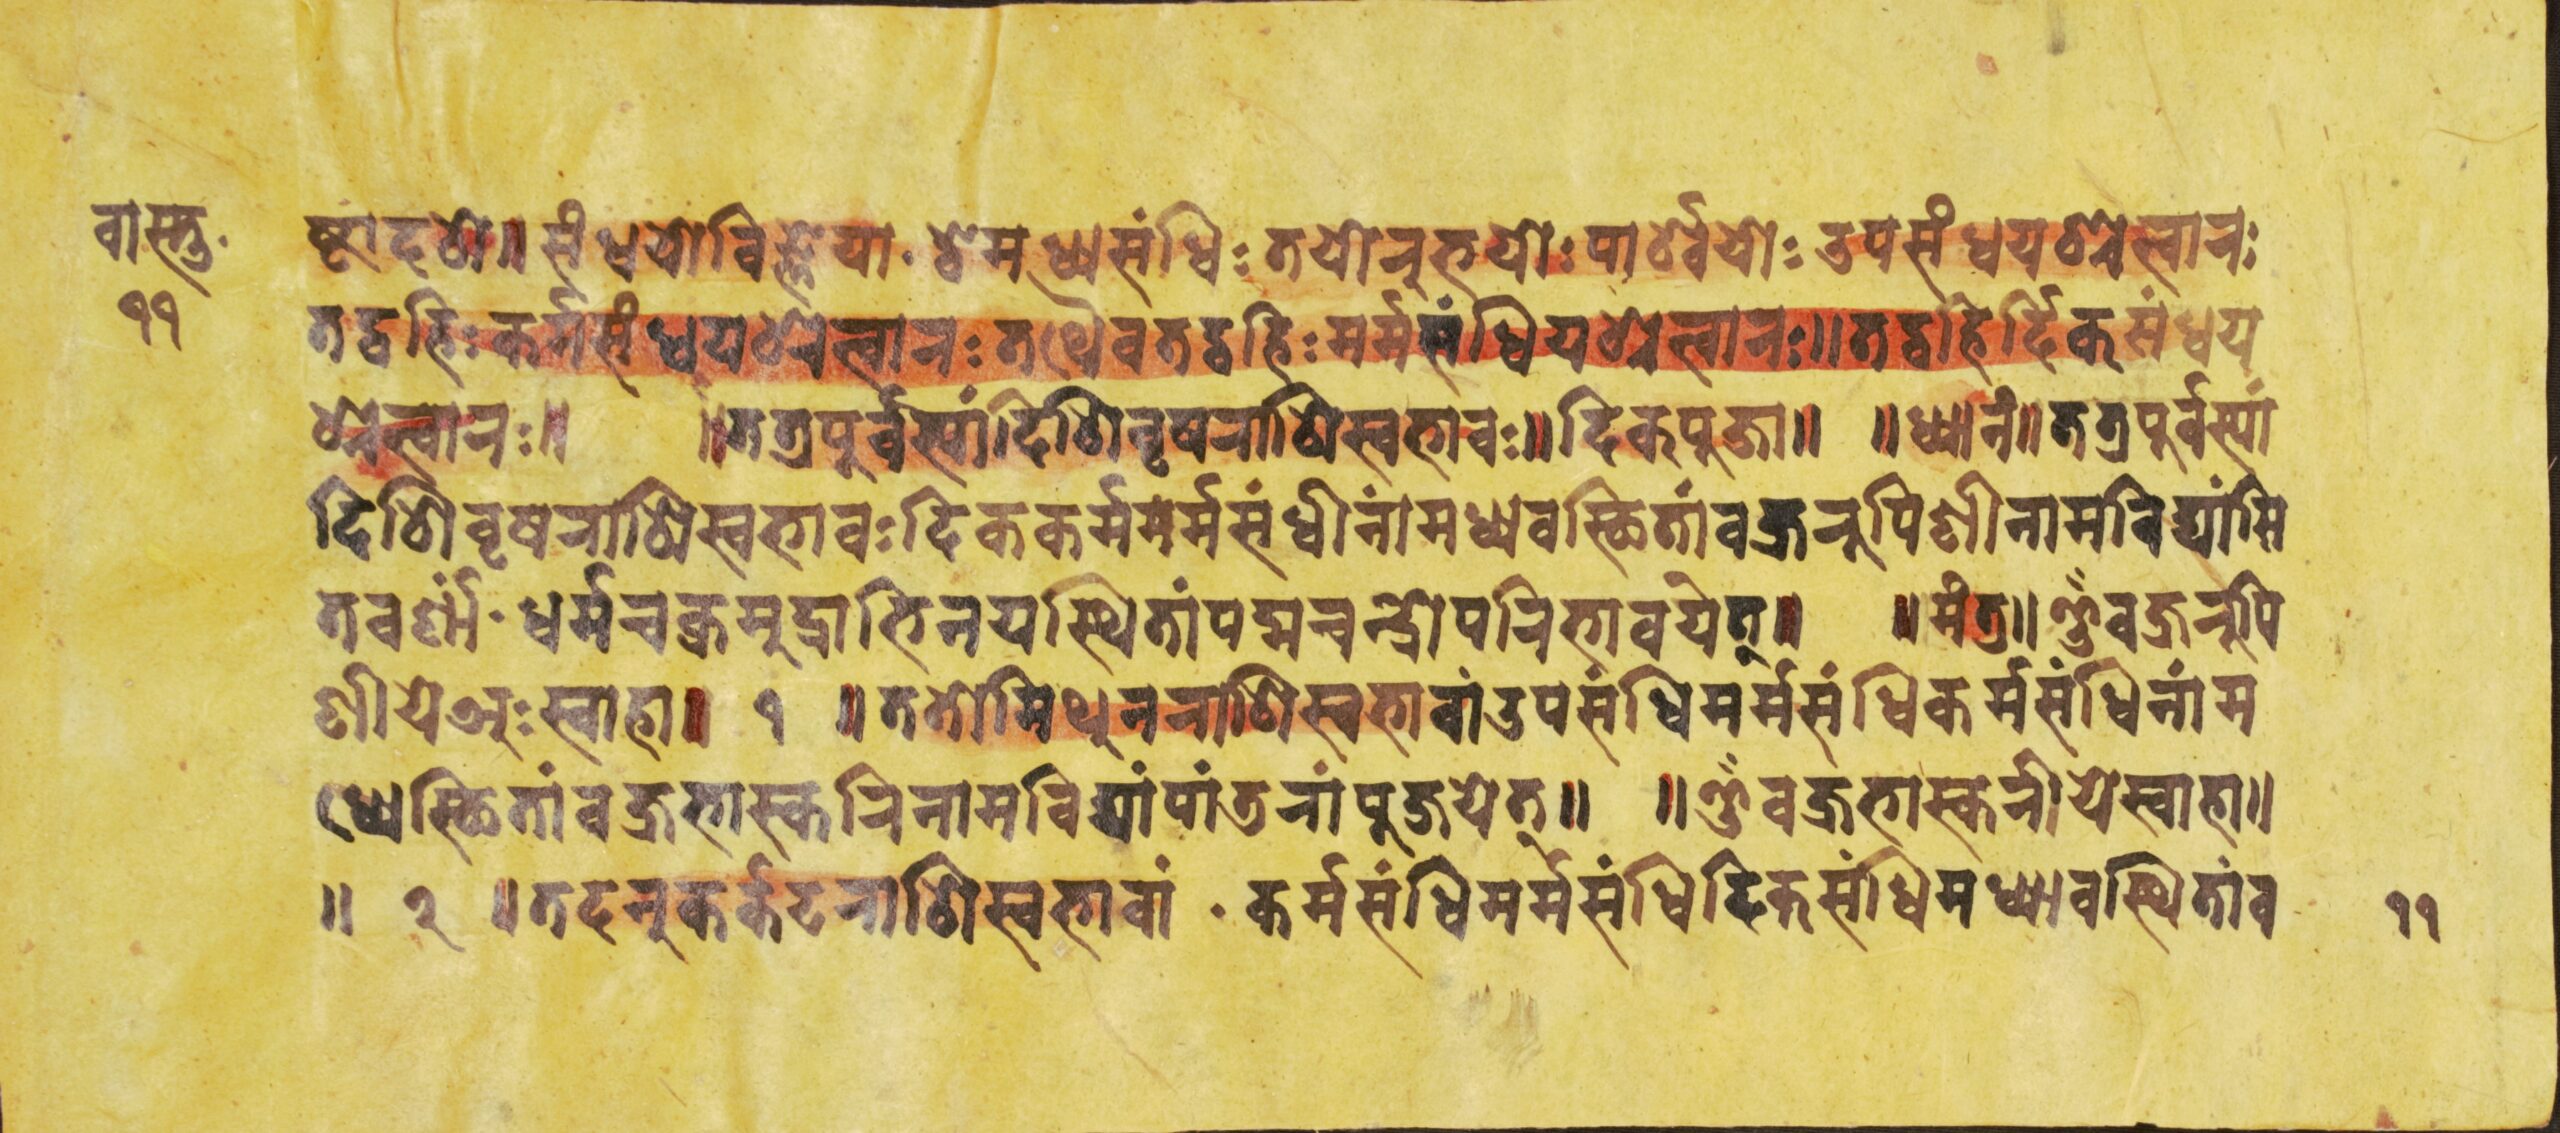 वास्तु·
११
ष्टादशे॥ संधयोविज्ञेया· द्वेमध्यसंधिः तयोरुभयोः पार्श्वयोः उपसंधयश्चत्वारः
तद्वहिः कर्मसंधयश्चत्वारः तथैवतद्वहिः मर्मसंधियश्चत्वारः॥ तद्वहिर्दिक्संधय
श्चत्वारः॥ ॥तत्रपूर्वस्यांदिशिवृषराशिस्वभावः॥ दिक्पूजा॥ ॥ध्यानं॥ तत्रपूर्वस्यां
दिशिवृषराशिस्वभावः दिककर्ममर्मसंधीनांमध्यवस्थितांवज्ररूपिणीनामविद्यांसि
तवर्णां· धर्मचक्रमुद्राभिनयस्थितांपद्मचन्द्रोपरिभावयेत्॥ ॥मंत्र॥ ॐवज्ररूपि
णीयेअः स्वाहा॥ १ ॥ततोमिथुनराशिस्वभावांउपसंधिमर्मसंधिकर्मसंधिनांम
ध्येस्थितांवज्रभास्करिनामविद्यांपांतरांपूजयेत्॥ ॥ॐवज्रभास्करीयेस्वाहा॥
॥ २ ॥तदनुकर्कटराशिस्वभावां · कर्मसंधिमर्मसंधिदिकसंधिमध्यावस्थितांव
११